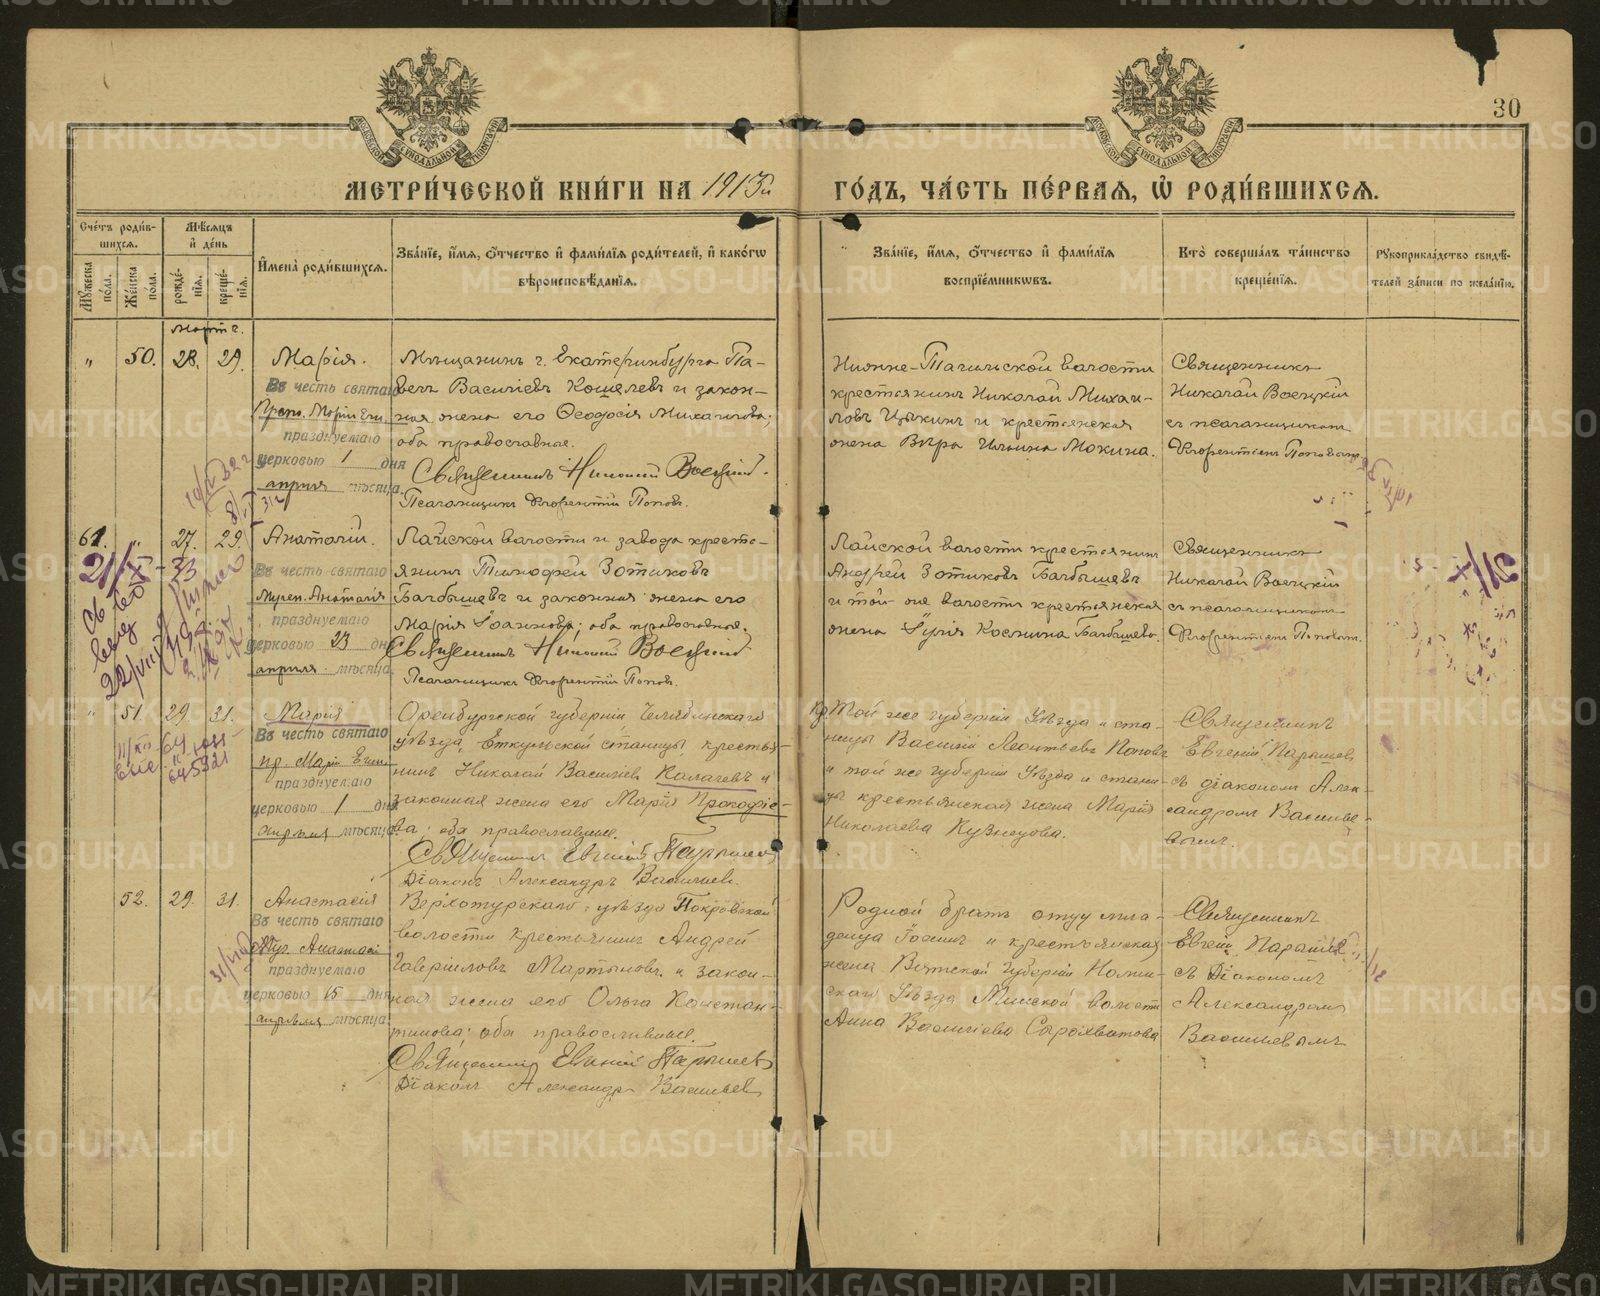 30
МЕТРИ́ЧЕСКОЙ КНИ́ГИ НА 1913й ГО́ДЪ, ЧА́СТЬ ПЕ́РВАЯ, Ѡ҆ РОДИ́ВШИХСЯ.
Сче́тъ роди́в-
шихся.
Мѣ́сяцъ
и҆ де́нь
Мꙋ́жеска по́ла.
Же́нска по́ла.
рожде́-
нїя.
креще́-
нїя.
И҆мена̀ роди́вшихся.
Зва́нїе, и҆́мя, ѻ҆́тчество и҆ фами́лїя роди́телей, и҆ како́гѡ
вѣроисповѣ́данїя.
Зва́нїе, и҆́мя, ѻ҆́тчество и҆ фами́лїя
воспрїе́мникѡвъ.
Кто̀ соверша́лъ та́инство
креще́нїя.
Рꙋкоприкла́дство свидѣ́-
телей за́писи по жела́нїю.
Марта.
„ 50. 28. 29.
Марія.
Въ честь святаго
Преп. Маріи Еги.
празднуемаго
церковью 1 дня
апрѣля мѣсяца.
Мѣщанинъ г. Екатеринбурга Па-
велъ Василіевъ Кошелевъ и закон-
ная жена его Ѳеодосія Михаилова;
оба православные.
Священникъ Николай Воецкій.
Псаломщикъ Флорентій Поповъ.
Нижне-Тагильской волости
крестьянинъ Николай Михаи-
ловъ Цыкинъ и крестьянская
жена Вѣра Ильина Мокина.
Священникъ
Николай Воецкій
съ псаломщикомъ
Флорентіемъ Поповымъ
61. „ 27. 29.
Анатолій.
Въ честь святаго
Мучен. Анатолія
празднуемаго
церковью 23 дня
апрѣля мѣсяца.
Лайской волости и завода кресть-
янинъ Тимофей Зотиковъ
Балбышевъ и законная жена его
Марія Іоаннова; оба православные.
Священникъ Николай Воецкій
Псаломщикъ Флорентій Поповъ.
Лайской волости крестьянинъ
Андрей Зотиковъ Балбышевъ
и той же волости крестьянская
жена Іулія Космина Балбышева.
Священникъ
Николай Воецкій
съ псаломщикомъ
Флорентіемъ Поповым.
„ 51. 29. 31.
Марія
Въ честь святаго
пр. Маріи Егип.
празднуемаго
церковью 1 дня
апрѣля мѣсяца.
Оренбургской губерніи Челябинскаго
уѣзда, Еткульской станицы крестья-
нинъ Николай Василіевъ Калачевъ и
законная жена его Марія Прокофіе-
ва; оба православные.
Священникъ Евгеній Парышевъ
Діаконъ Александръ Васильевъ.
Той же губерніи Уѣзда и ста-
ницы Василій Леонтьевъ Поповъ
и той же губерніи Уѣзда и стани-
цы крестьянская жена Марія
Николаева Кузнецова.
Священникъ
Евгеній Парышев
съ діакономъ Алек-
сандромъ Василье-
вымъ.
52. 29. 31.
Анастасія
Въ честь святаго
Муч. Анастасі
празднуемаго
церковью 15 дня
апрѣля мѣсяца.
Верхотурскаго уѣзда Покровской
волости крестьянинъ Андрей
Гавріиловъ Мартыновъ и закон-
ная жена его Ольга Констан-
тинова; оба православные.
Священникъ Евгеній Парышевъ
Діаконъ Александръ Васильевъ
Родной братъ отцу мла-
денца Іоаннъ и крестьянская
жена Вятской Губерніи Нолин-
скаго Уѣзда волости
Анна Василіева Сыроватова
Священникъ
Евгеній Парышев
съ Діакономъ
Александромъ
Васильевымъ
METRIKI.GASO-URAL.RU